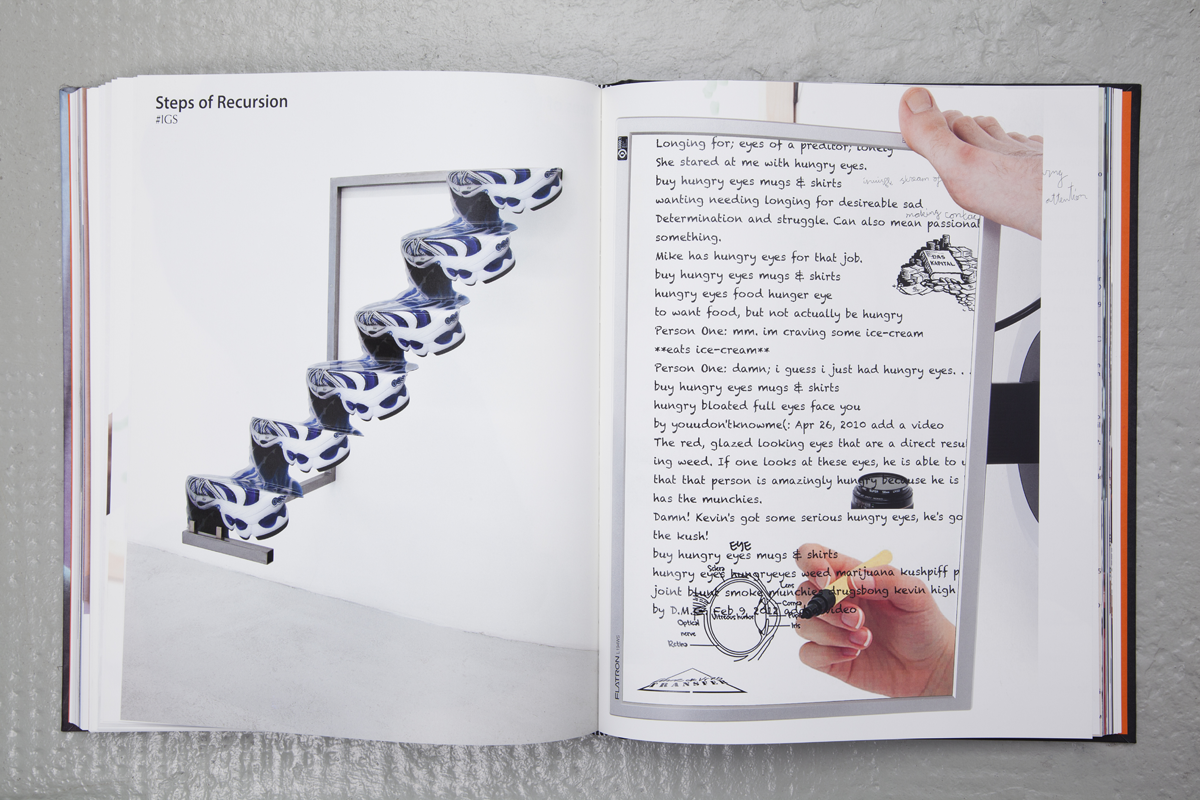 Steps of Recursion
#IGS
Longing for; eyes of a preditor; lonely
She stared at me with hungry eyes.
buy hungry eyes mugs & shirts
wanting needing longing for desireable sad
making contac
Determination and struggle. Can also mean passional
something.
Mike has hungry eyes for that job.
buy hungry eyes mugs & shirts
hungry eyes food hunger eye
to want food, but not actually be hungry
Person One: mm. im craving some ice-cream
**eats ice-cream**
Person One: damn; i guess i just had hungry eyes. . .
buy hungry eyes mugs & shirts
hungry bloated full eyes face you
by youudon'tknowme(: Apr 26, 2010 add a video
The red, glazed looking eyes that are a direct resu
ing weed. If one looks at these eyes, he is able to
that that person is amazingly hungry because he is
has the munchies.
Damn! Kevin's got some serious hungry eyes, he's go
the kush!
buy hungry eyes mugs & shirts
hungry eyes hungryeyes weed marijuana kushpiff p
joint blunt smoke munchies drugsbong kevin high
by D.M. Feb 9, 2012 video
attention
DAS
KAPITAL
EYE
Sclera
Lens
Cornea
Vitreous humor
Iris
Optical
nerve
Retina
TRANSFER
FLATRON